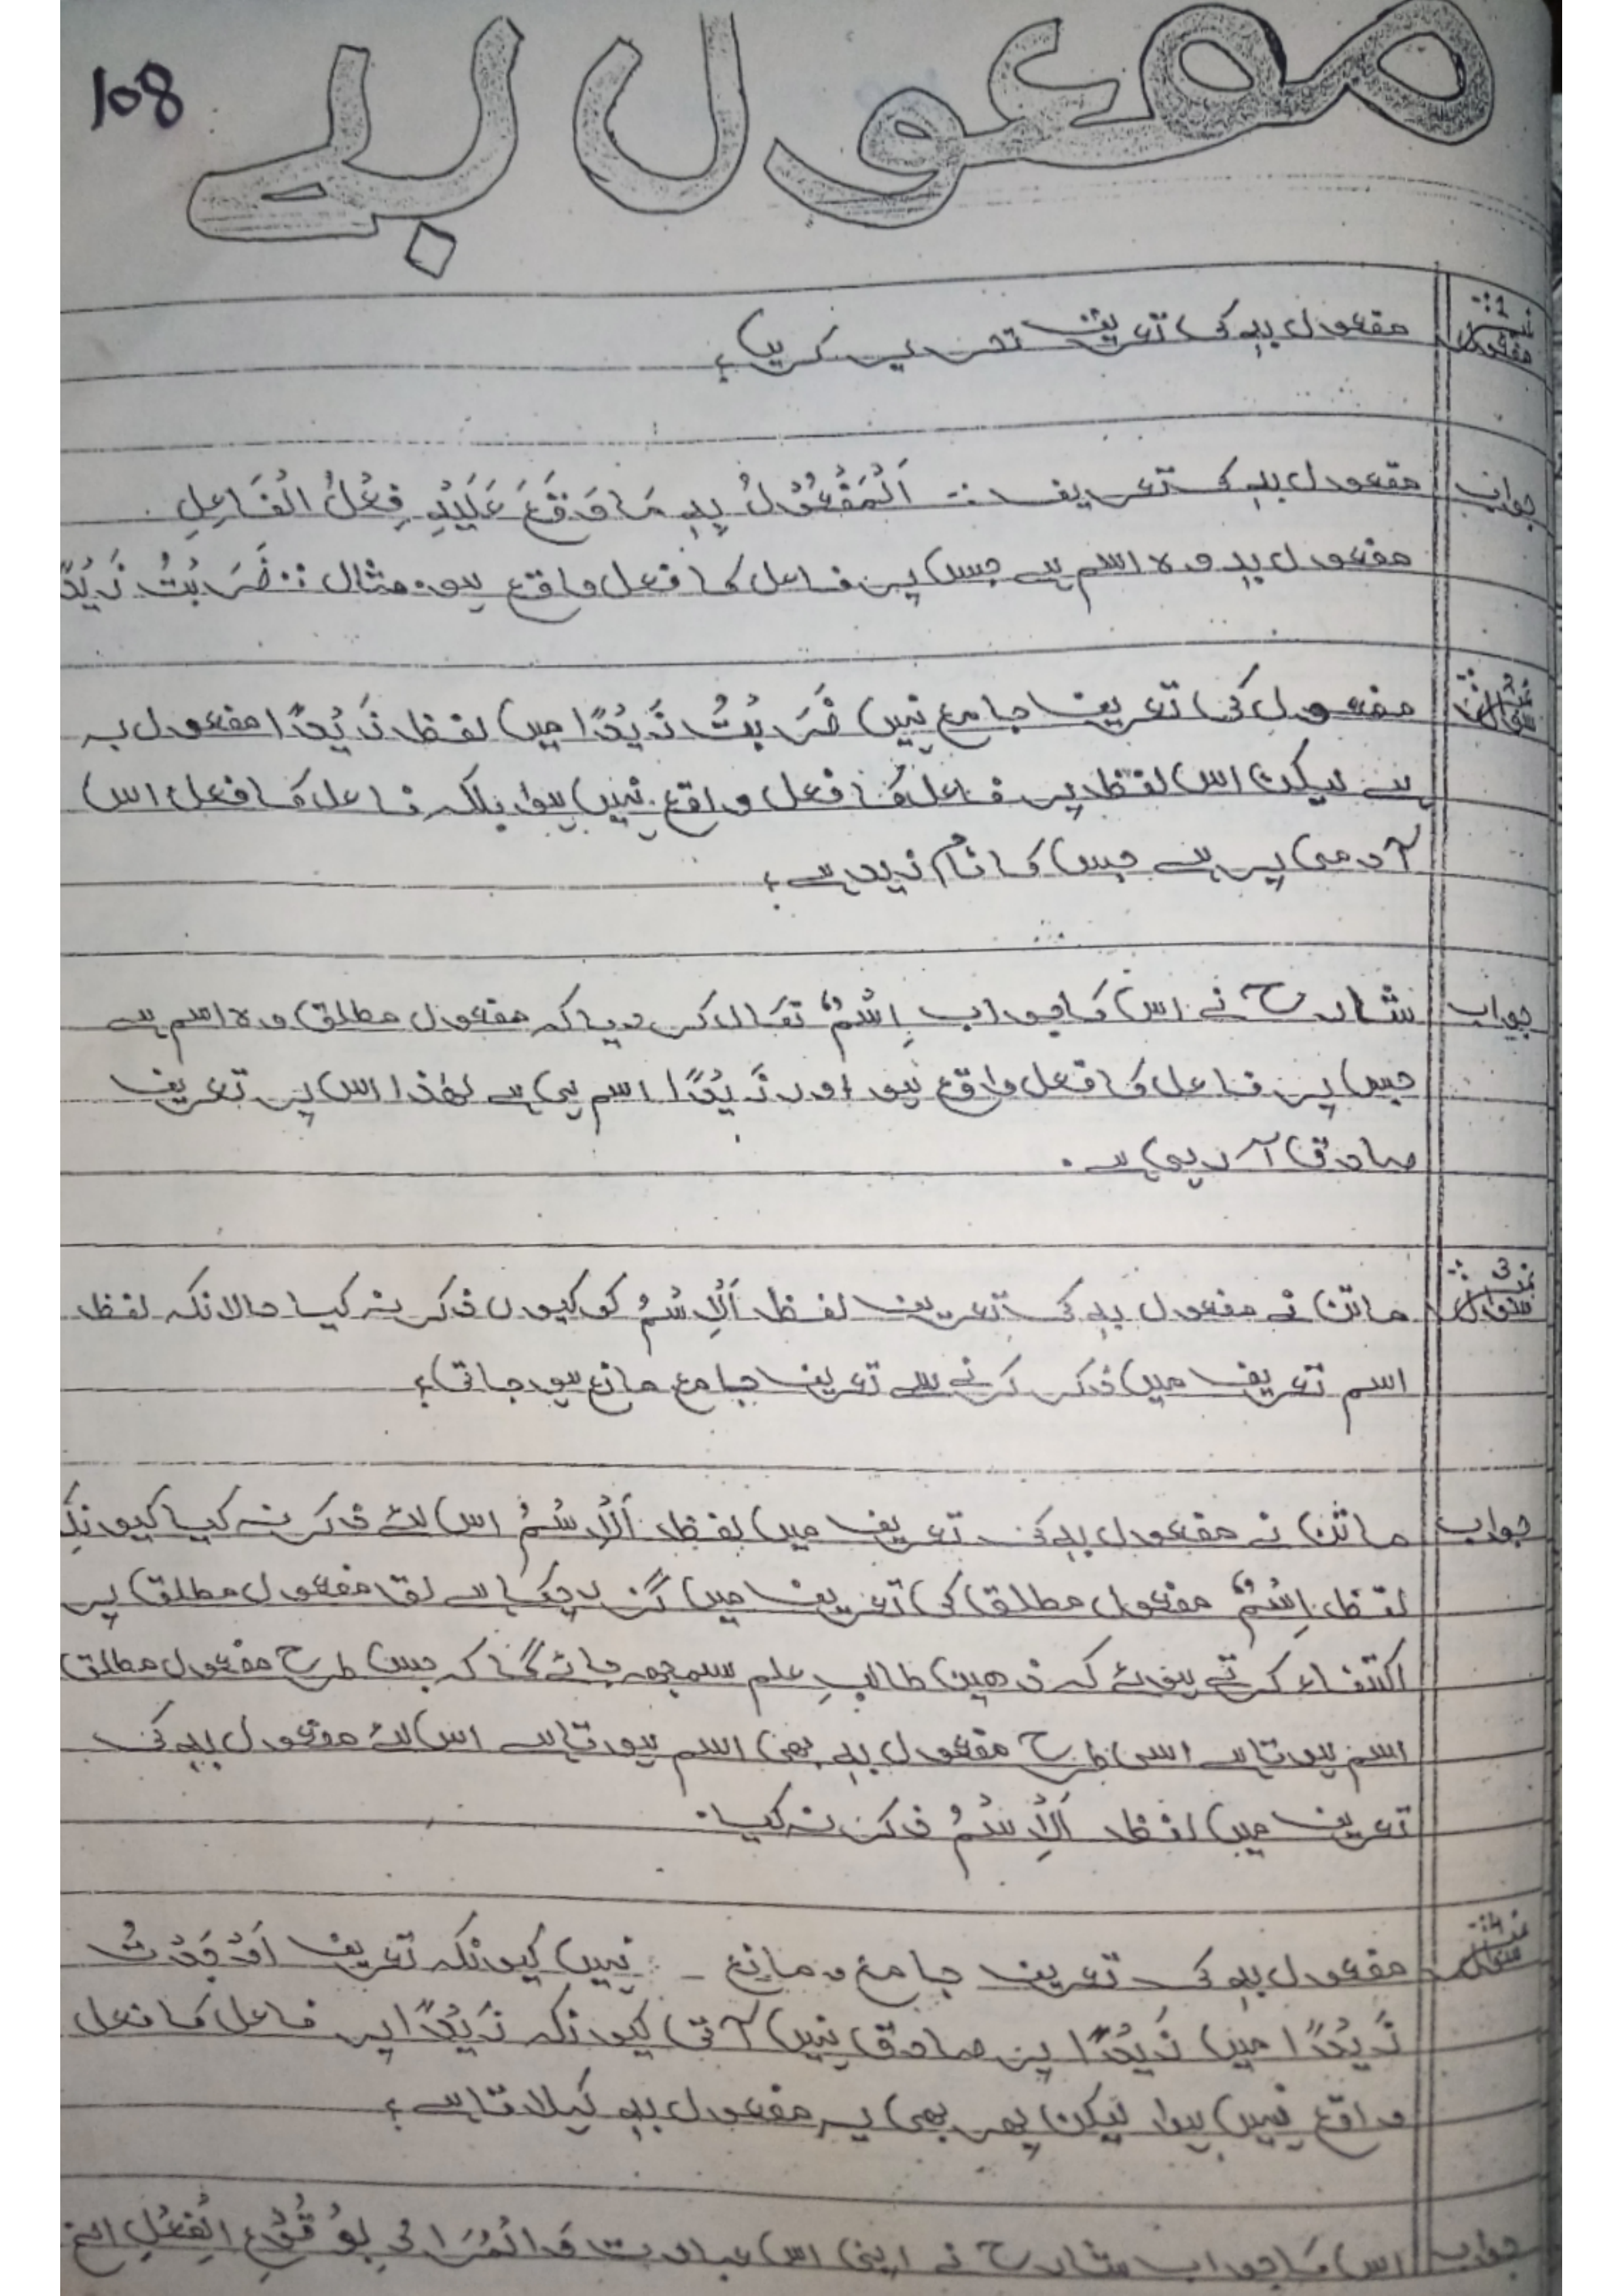 مفعول بہ
108
سوال نمبر 1: مفعول بہ کی تعریف تحریر کریں؟
جواب مفعول بہ کی تعریف :: اَلْمَفْعُوْلُ بِهٖ مَا وَقَعَ عَلَيْهِ فِعْلُ الْفَاعِلِ .
مفعول بہ وہ اسم ہے جس پر فاعل کا فعل واقع ہو۔ مثال :: ضَرَبْتُ زَيْدًا
سوال نمبر 2: مفعول کی تعریف جامع نہیں ضَرَبْتُ زَيْدًا میں لفظ زَيْدًا مفعول بہ
ہے لیکن اس لفظ پر فاعل کا فعل واقع نہیں ہوا بلکہ فاعل کا فعل اس
آدمی پر ہے جس کا نام زید ہے؟
جواب شارح نے اس کا جواب اِسْمٌ نکال کر دیا کہ مفعول مطلق وہ اسم ہے
جس پر فاعل کا فعل واقع ہو اور زَيْدًا اسم ہی ہے لھٰذا اس پر تعریف
صادق آ رہی ہے۔
سوال نمبر 3: ماتن نے مفعول بہ کی تعریف لفظ اَلْاِسْمُ کو کیوں ذکر نہ کیا حالانکہ لفظ
اسم تعریف میں ذکر کرنے سے تعریف جامع مانع ہو جاتی؟
جواب ماتن نے مفعول بہ کی تعریف میں لفظ اَلْاِسْمُ اس لئے ذکر نہ کیا کیونکہ
لفظ اِسْمٌ مفعول مطلق کی تعریف میں گزر چکا ہے تو مفعول مطلق پر
اکتفاء کرتے ہوئے کہ ذھین طالبِ علم سمجھ جائے گا کہ جس طرح مفعول مطلق
اسم ہوتا ہے اسی طرح مفعول بہ بھی اسم ہوتا ہے اس لئے مفعول بہ کی
تعریف میں لفظ اَلْاِسْمُ ذکر نہ کیا۔
سوال نمبر 4: مفعول بہ کی تعریف جامع و مانع - نہیں کیونکہ تعریف اَوْجَدْتُ
زَيْدًا میں زَيْدًا پر صادق نہیں آتی کیونکہ زَيْدًا پر فاعل کا فعل
واقع نہیں ہوا لیکن پھر بھی یہ مفعول بہ کہلاتا ہے؟
جواب اس کا جواب شارح نے اپنی اس عبارت وَالْمُرَادُ بِوُقُوْعِ الْفِعْلِ الخ